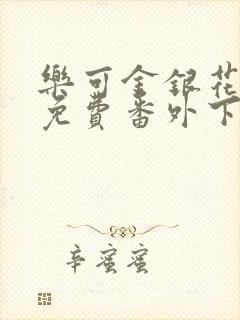 樂可金銀花
免費番外下
辛蜜蜜